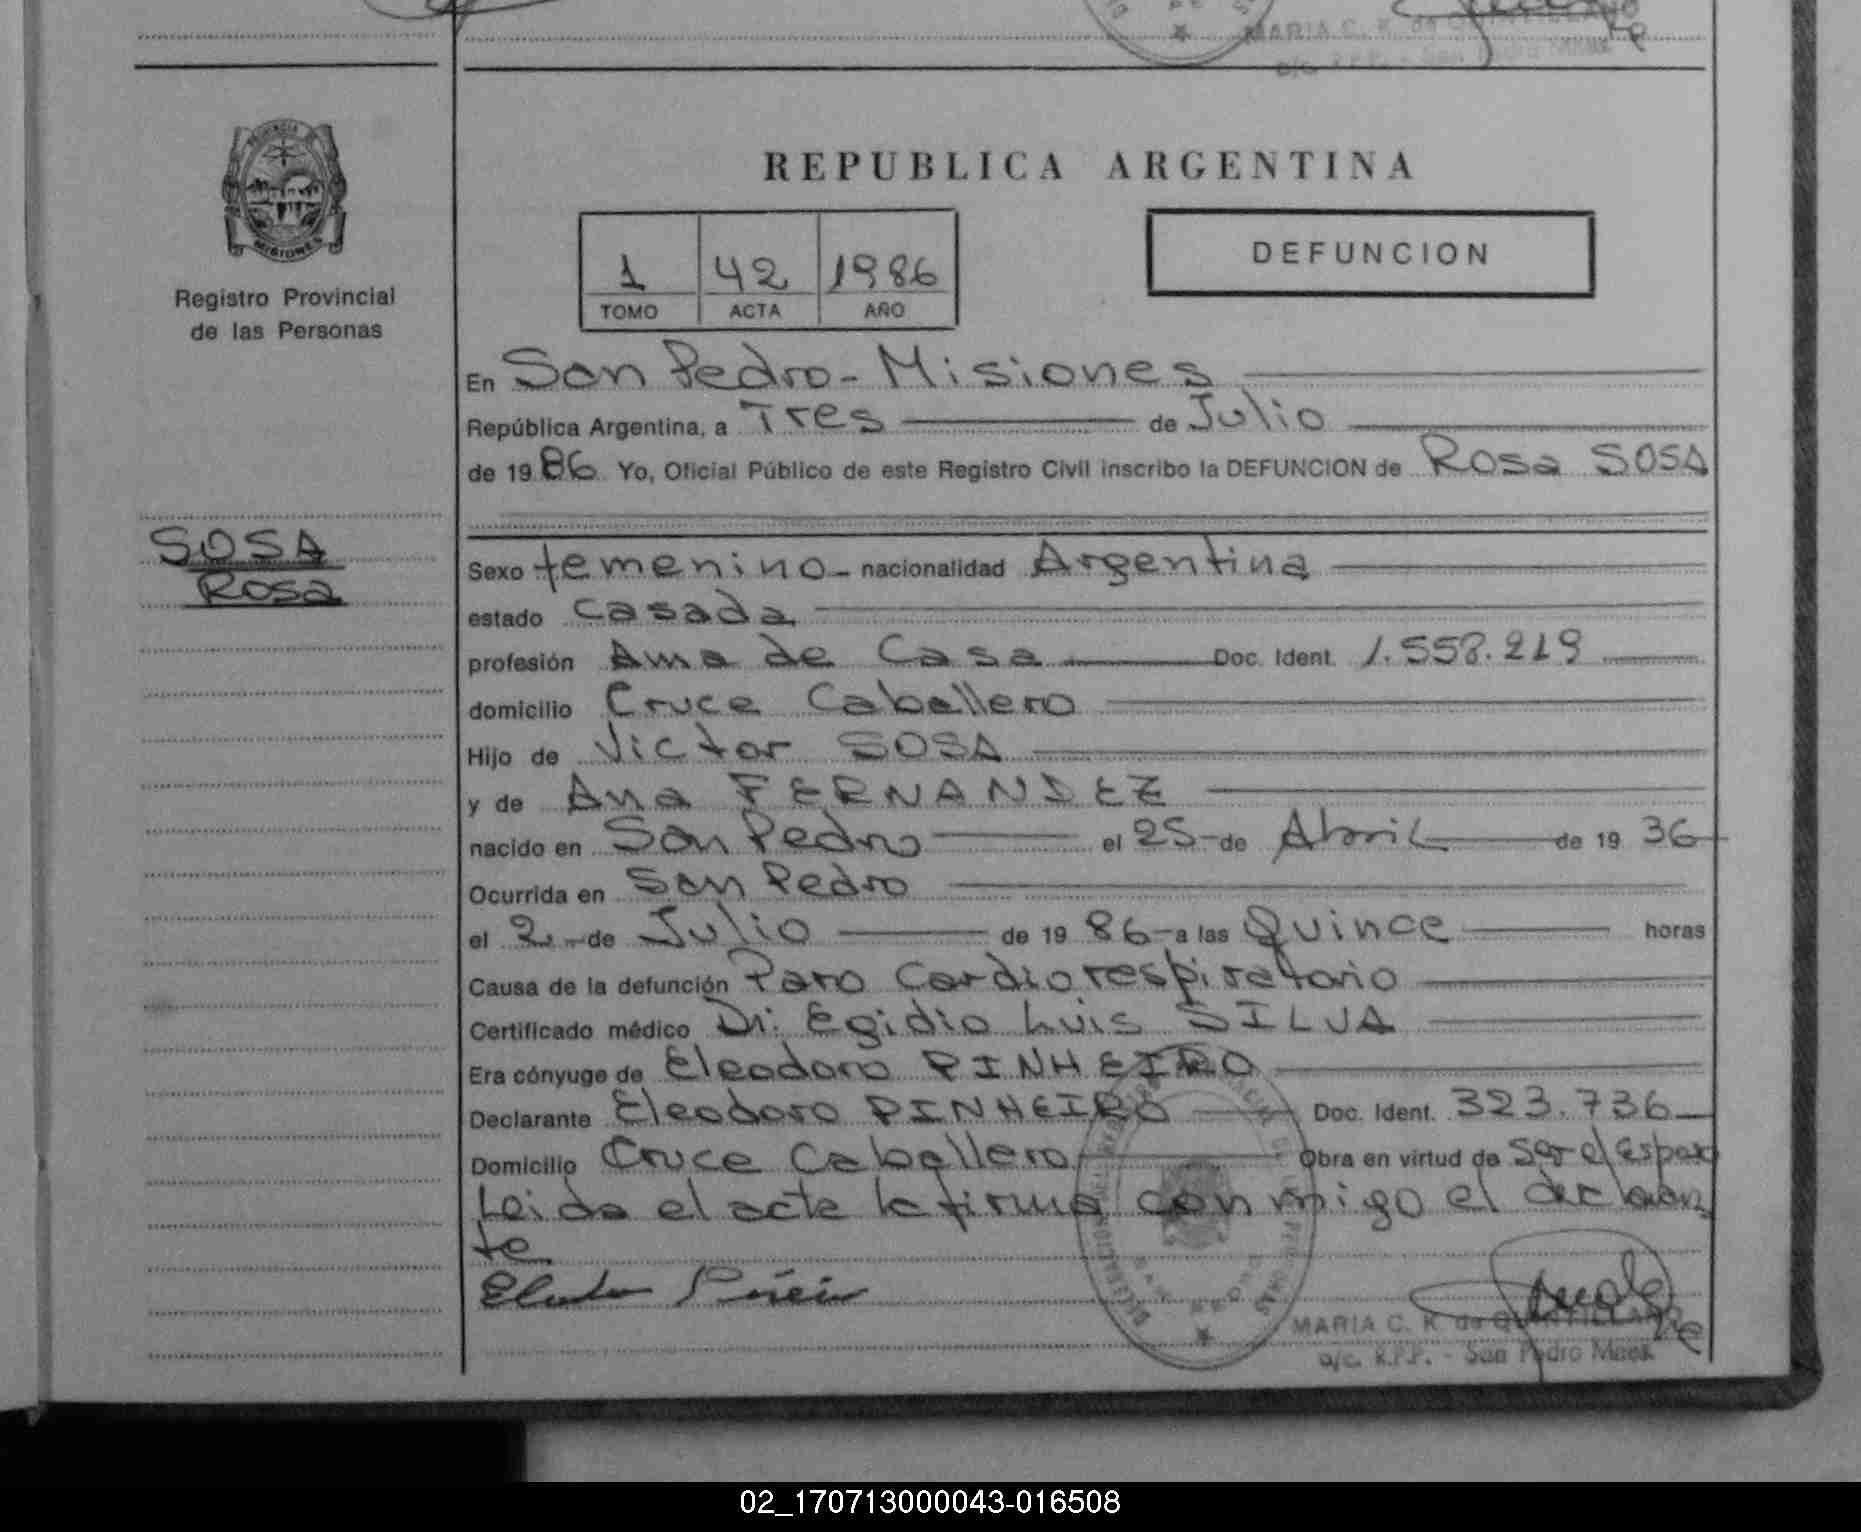 MARIA C. K. de QUINTILLANO
REPUBLICA ARGENTINA
PROVINCIA
MISIONES
Registro Provincial
de las Personas
1 42 1986
TOMO ACTA AÑO
DEFUNCION
En San Pedro - Misiones
República Argentina, a Tres de Julio
de 1986 Yo, Oficial Público de este Registro Civil inscribo la DEFUNCION de Rosa SOSA
SOSA
Rosa
Sexo femenino - nacionalidad Argentina
estado casada
profesión Ama de Casa Doc. Ident. 1.558.219
domicilio Cruce Caballero
Hijo de Victor SOSA
y de Ana FERNANDEZ
nacido en San Pedro el 25 de Abril de 19 36
Ocurrida en San Pedro
el 2 - de Julio de 19 86 a las Quince horas
Causa de la defunción Paro Cardiorespiratorio
Certificado médico Dr. Egidio Luis SILVA
Era cónyuge de Eleodoro PINHEIRO
Declarante Eleodoro PINHEIRO Doc. Ident. 323.736
Domicilio Cruce Caballero Obra en virtud de ser el esposo
Leida el acta la firma conmigo el declaran
te
MARIA C. K. de QUINTILLANO
o/c. R.P.P. - San Pedro Mnes.
02_170713000043-016508